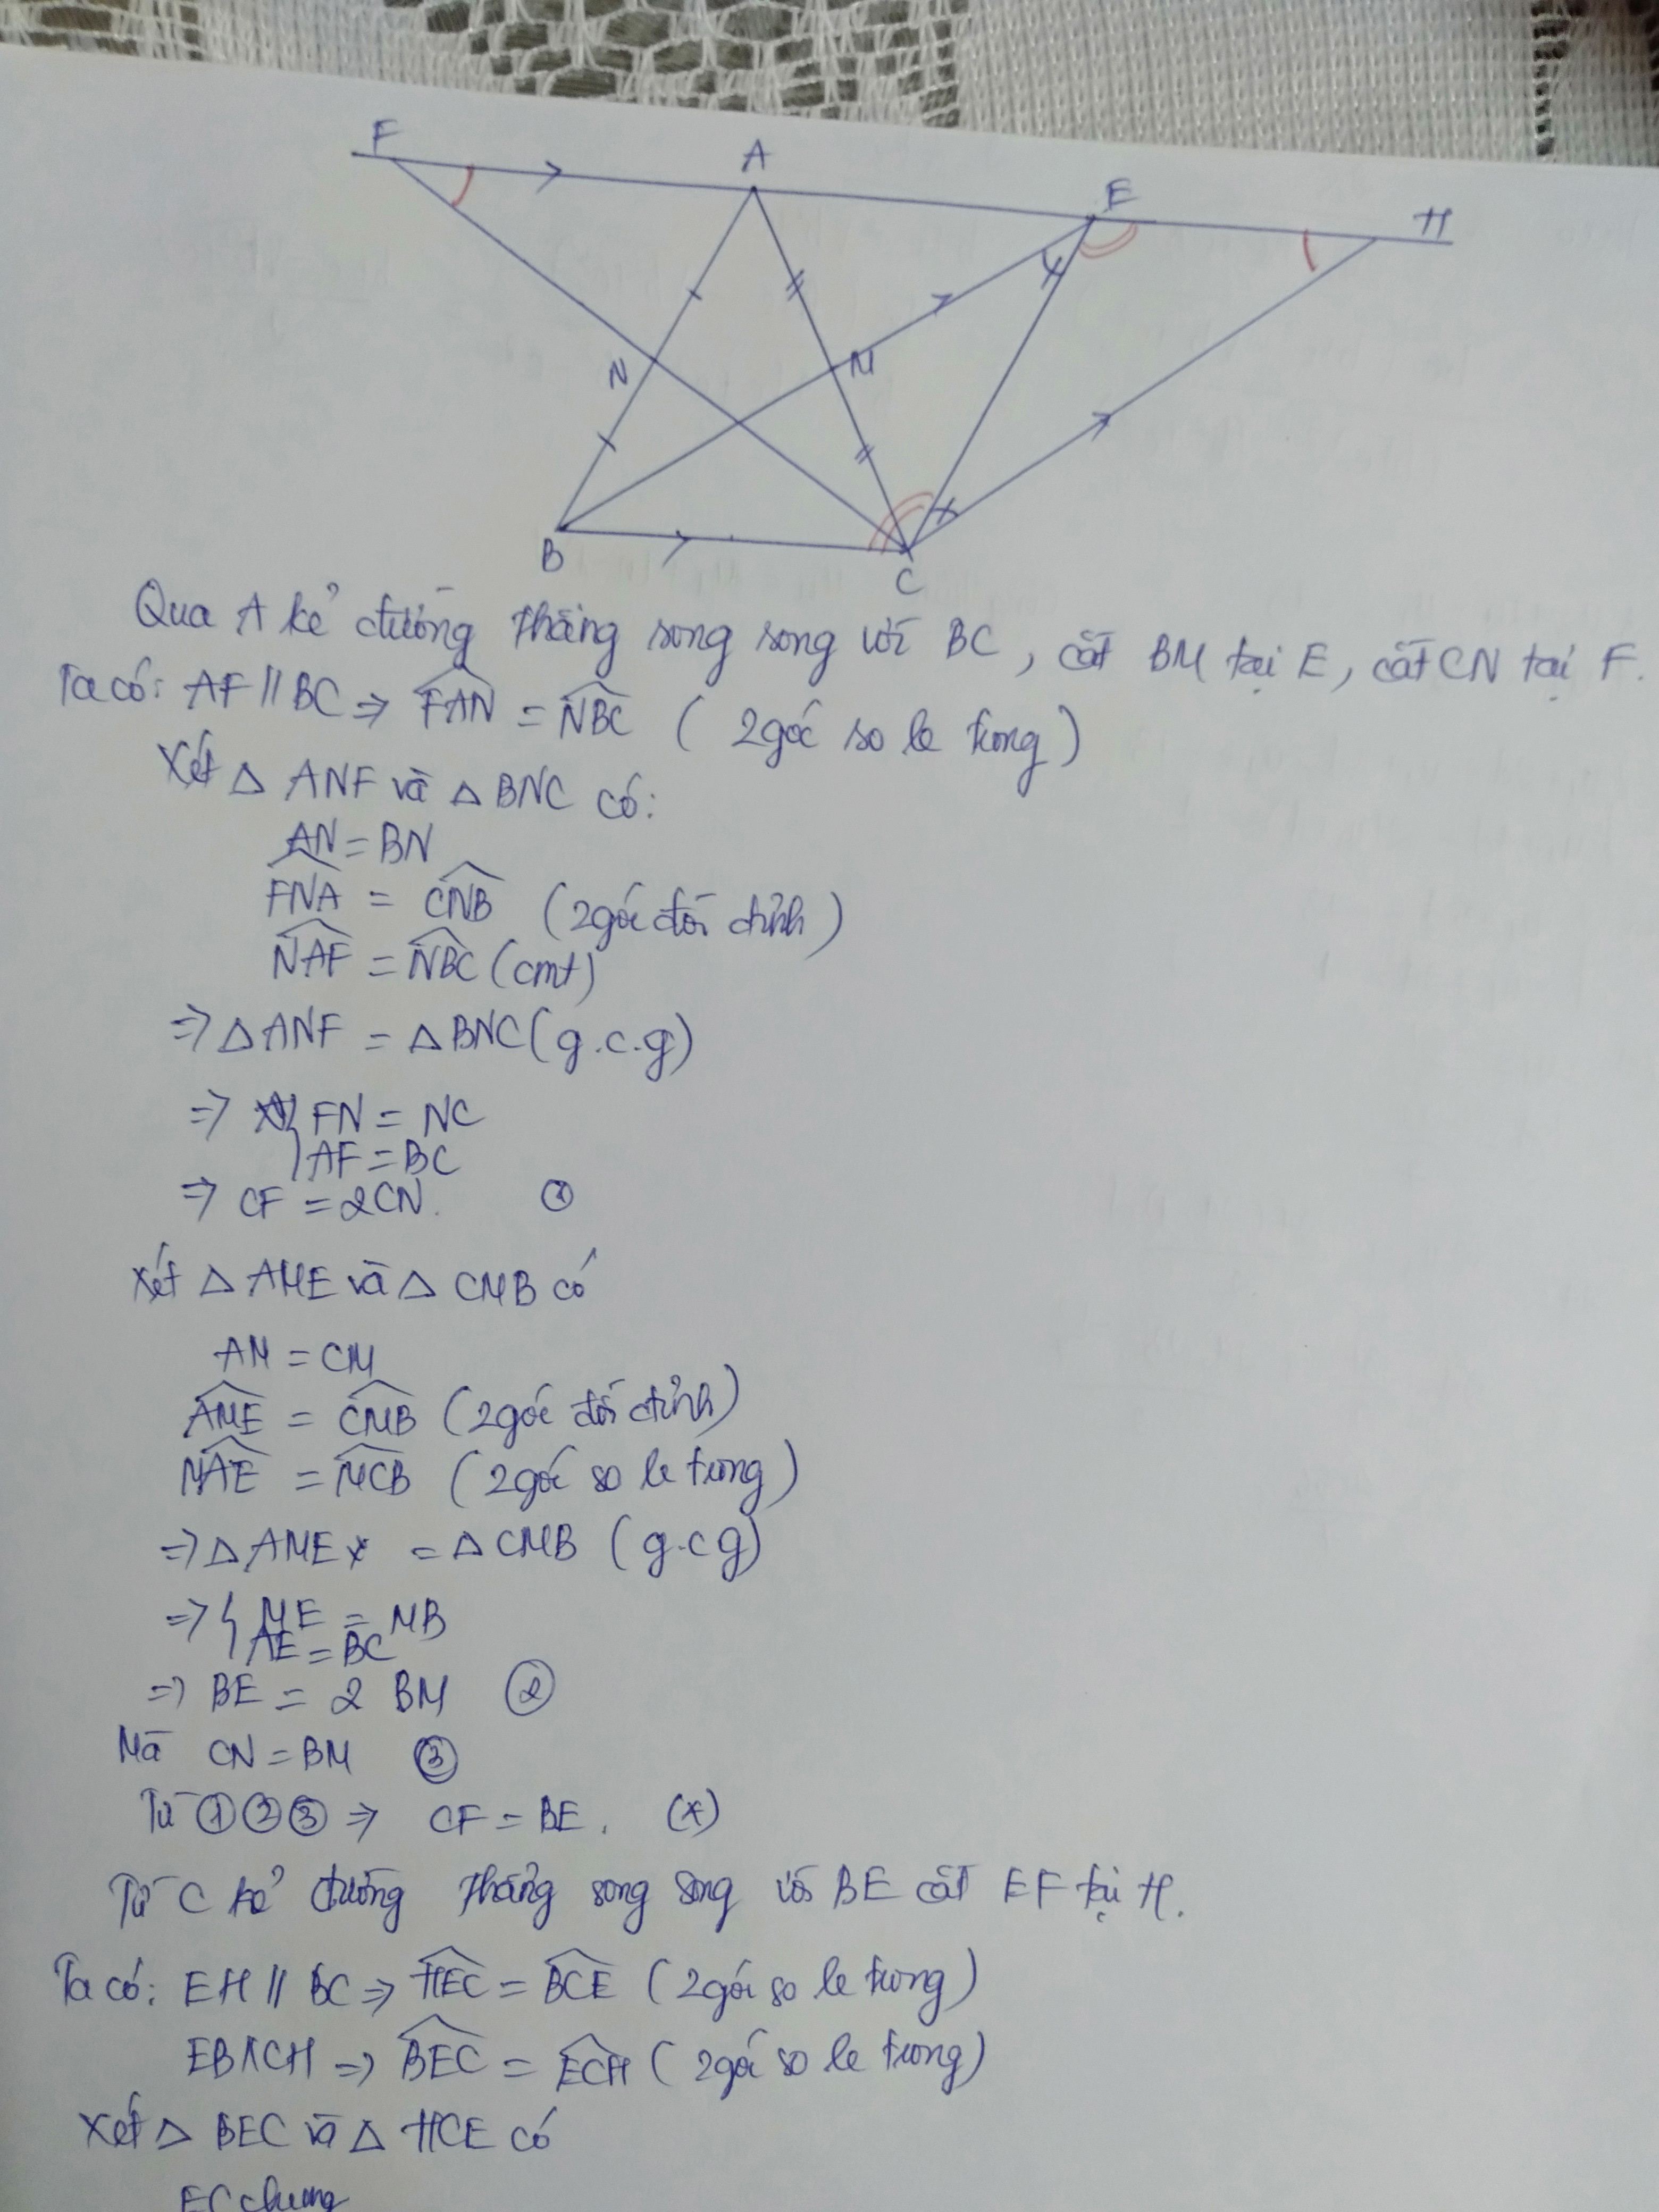 F A E H
N M
B C
Qua A kẻ đường thẳng song song với BC, cắt BM tại E, cắt CN tại F.
Ta có: AF // BC => FAN = NBC (2 góc so le trong)
Xét △ ANF và △ BNC có:
AN = BN
FNA = CNB (2 góc đối đỉnh)
NAF = NBC (cmt)
=> △ ANF = △ BNC (g.c.g)
=> { FN = NC
AF = BC
=> CF = 2CN. ①
Xét △ AME và △ CMB có
AM = CM
AME = CMB (2 góc đối đỉnh)
MAE = MCB (2 góc so le trong)
=> △ AME = △ CMB (g.c g)
=> { ME = MB
AE = BC
=> BE = 2 BM ②
Mà CN = BM ③
Từ ① ② ③ => CF = BE. (*)
Từ C kẻ đường thẳng song song với BE cắt EF tại H.
Ta có: EH // BC => HEC = BCE (2 góc so le trong)
EB // CH => BEC = ECH (2 góc so le trong)
Xét △ BEC và △ HCE có
EC chung